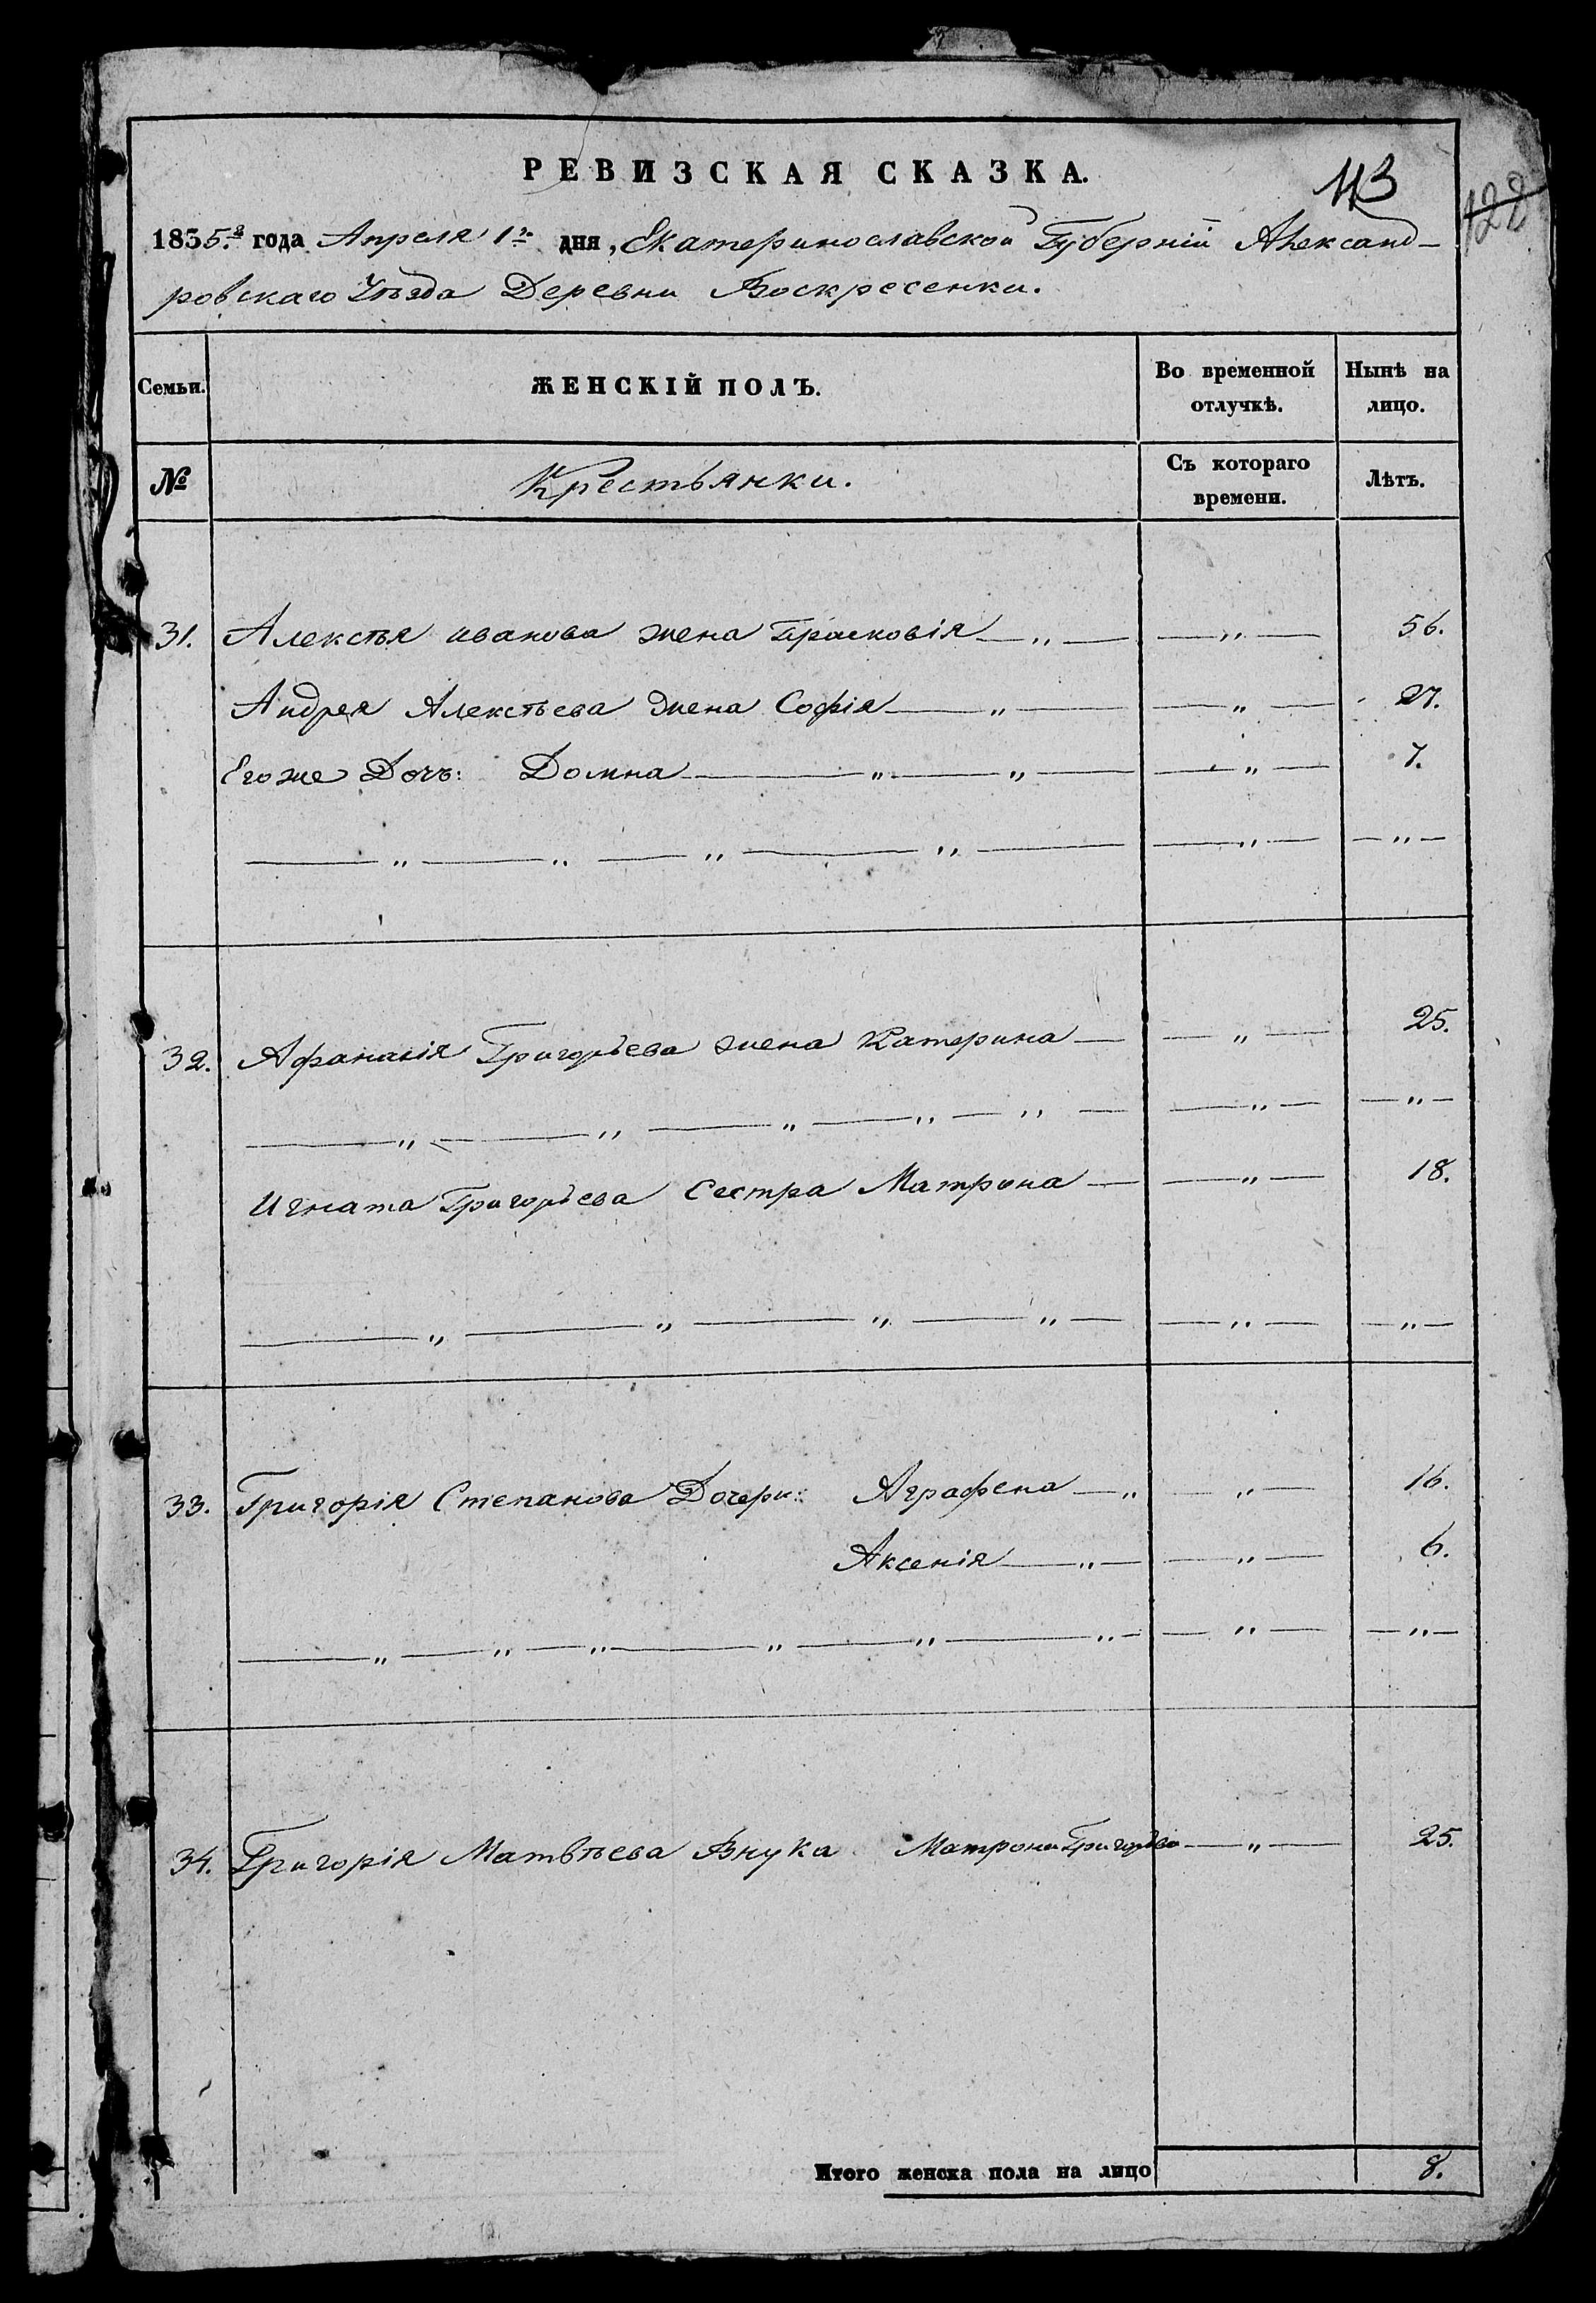 РЕВИЗСКАЯ СКАЗКА.
113
122
1835.г года Апреля 1го дня, Екатеринославской Губерніи Александ-
ровскаго Уѣзда Деревни Воскресенки.
Семьи.
ЖЕНСКІЙ ПОЛЪ.
Во временной отлучкѣ.
Нынѣ на лицо.
№
Крестьянки.
Съ котораго времени.
Лѣтъ.
31. Алексѣя иванова жена Прасковія — „ — — „ — 56.
Андрея Алексѣева жена Софія — „ — — „ — 27.
Егоже Дочь: Домна — „ — „ — — „ — 7.
— „ — „ — „ — „ — — „ — — „ —
32. Афанасія Григорьева жена Катерина — — „ — 25.
— „ — „ — „ — „ — „ — — „ — — „ —
Игната Григорьева Сестра Матрона — — „ — 18.
— „ — „ — „ — „ — — „ — — „ —
33. Григорія Степанова Дочери: Аграфена — „ — „ — 16.
Аксенія — „ — — „ — 6.
— „ — „ — „ — „ — „ — „ — — „ — — „ —
34. Григорія Матвѣева Внука Матрона Григорьева — „ — 25.
Итого женска пола на лицо 8.